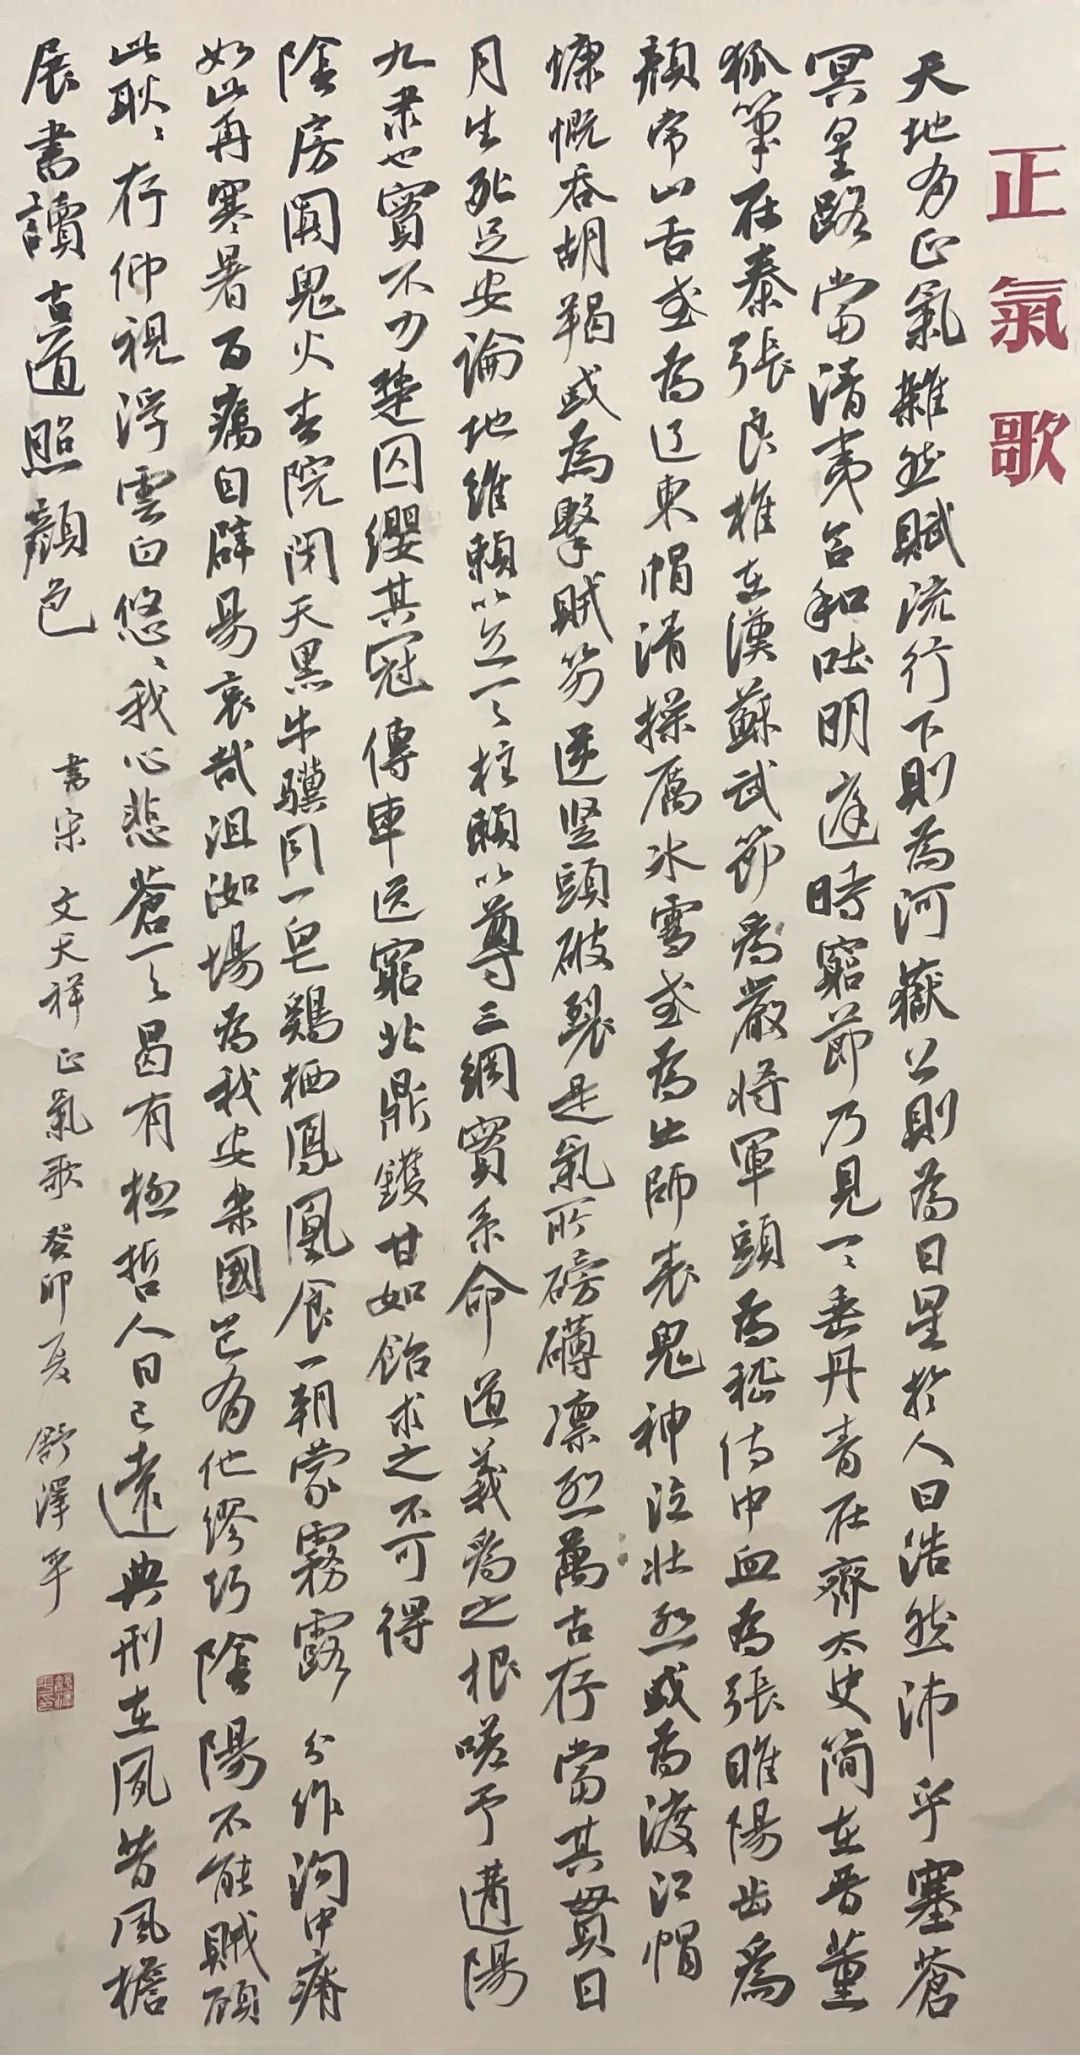 正氣歌
天地有正氣雜然賦流行下則為河嶽上則為日星於人曰浩然沛乎塞蒼
冥皇路當清夷含和吐明庭時窮節乃見一一垂丹青在齊太史簡在晉董
狐筆在秦張良椎在漢蘇武節為嚴將軍頭為嵇侍中血為張睢陽齒為
顏常山舌或為辽東帽清操厲冰雪或為出師表鬼神泣壯烈或為渡江帽
慷慨吞胡羯或為擊賊笏逆竖頭破裂是氣所磅礴凛烈萬古存當其貫日
月生死足安論地維賴以立天柱賴以尊三綱實系命道義為之根嗟予遘陽
九隶也實不力楚囚纓其冠傳車送窮北鼎鑊甘如飴求之不可得
陰房闃鬼火春院閉天黑牛驥同一皂鷄栖鳳凰食一朝蒙霧露分作溝中瘠
如此再寒暑百癘自辟易哀哉沮洳場為我安樂國豈有他繆巧陰陽不能賊顧
此耿々存仰視浮雲白悠々我心悲蒼天曷有極哲人日已遠典刑在夙昔風檐
展書讀古道照顏色
書宋文天祥正氣歌癸卯夏舒澤平